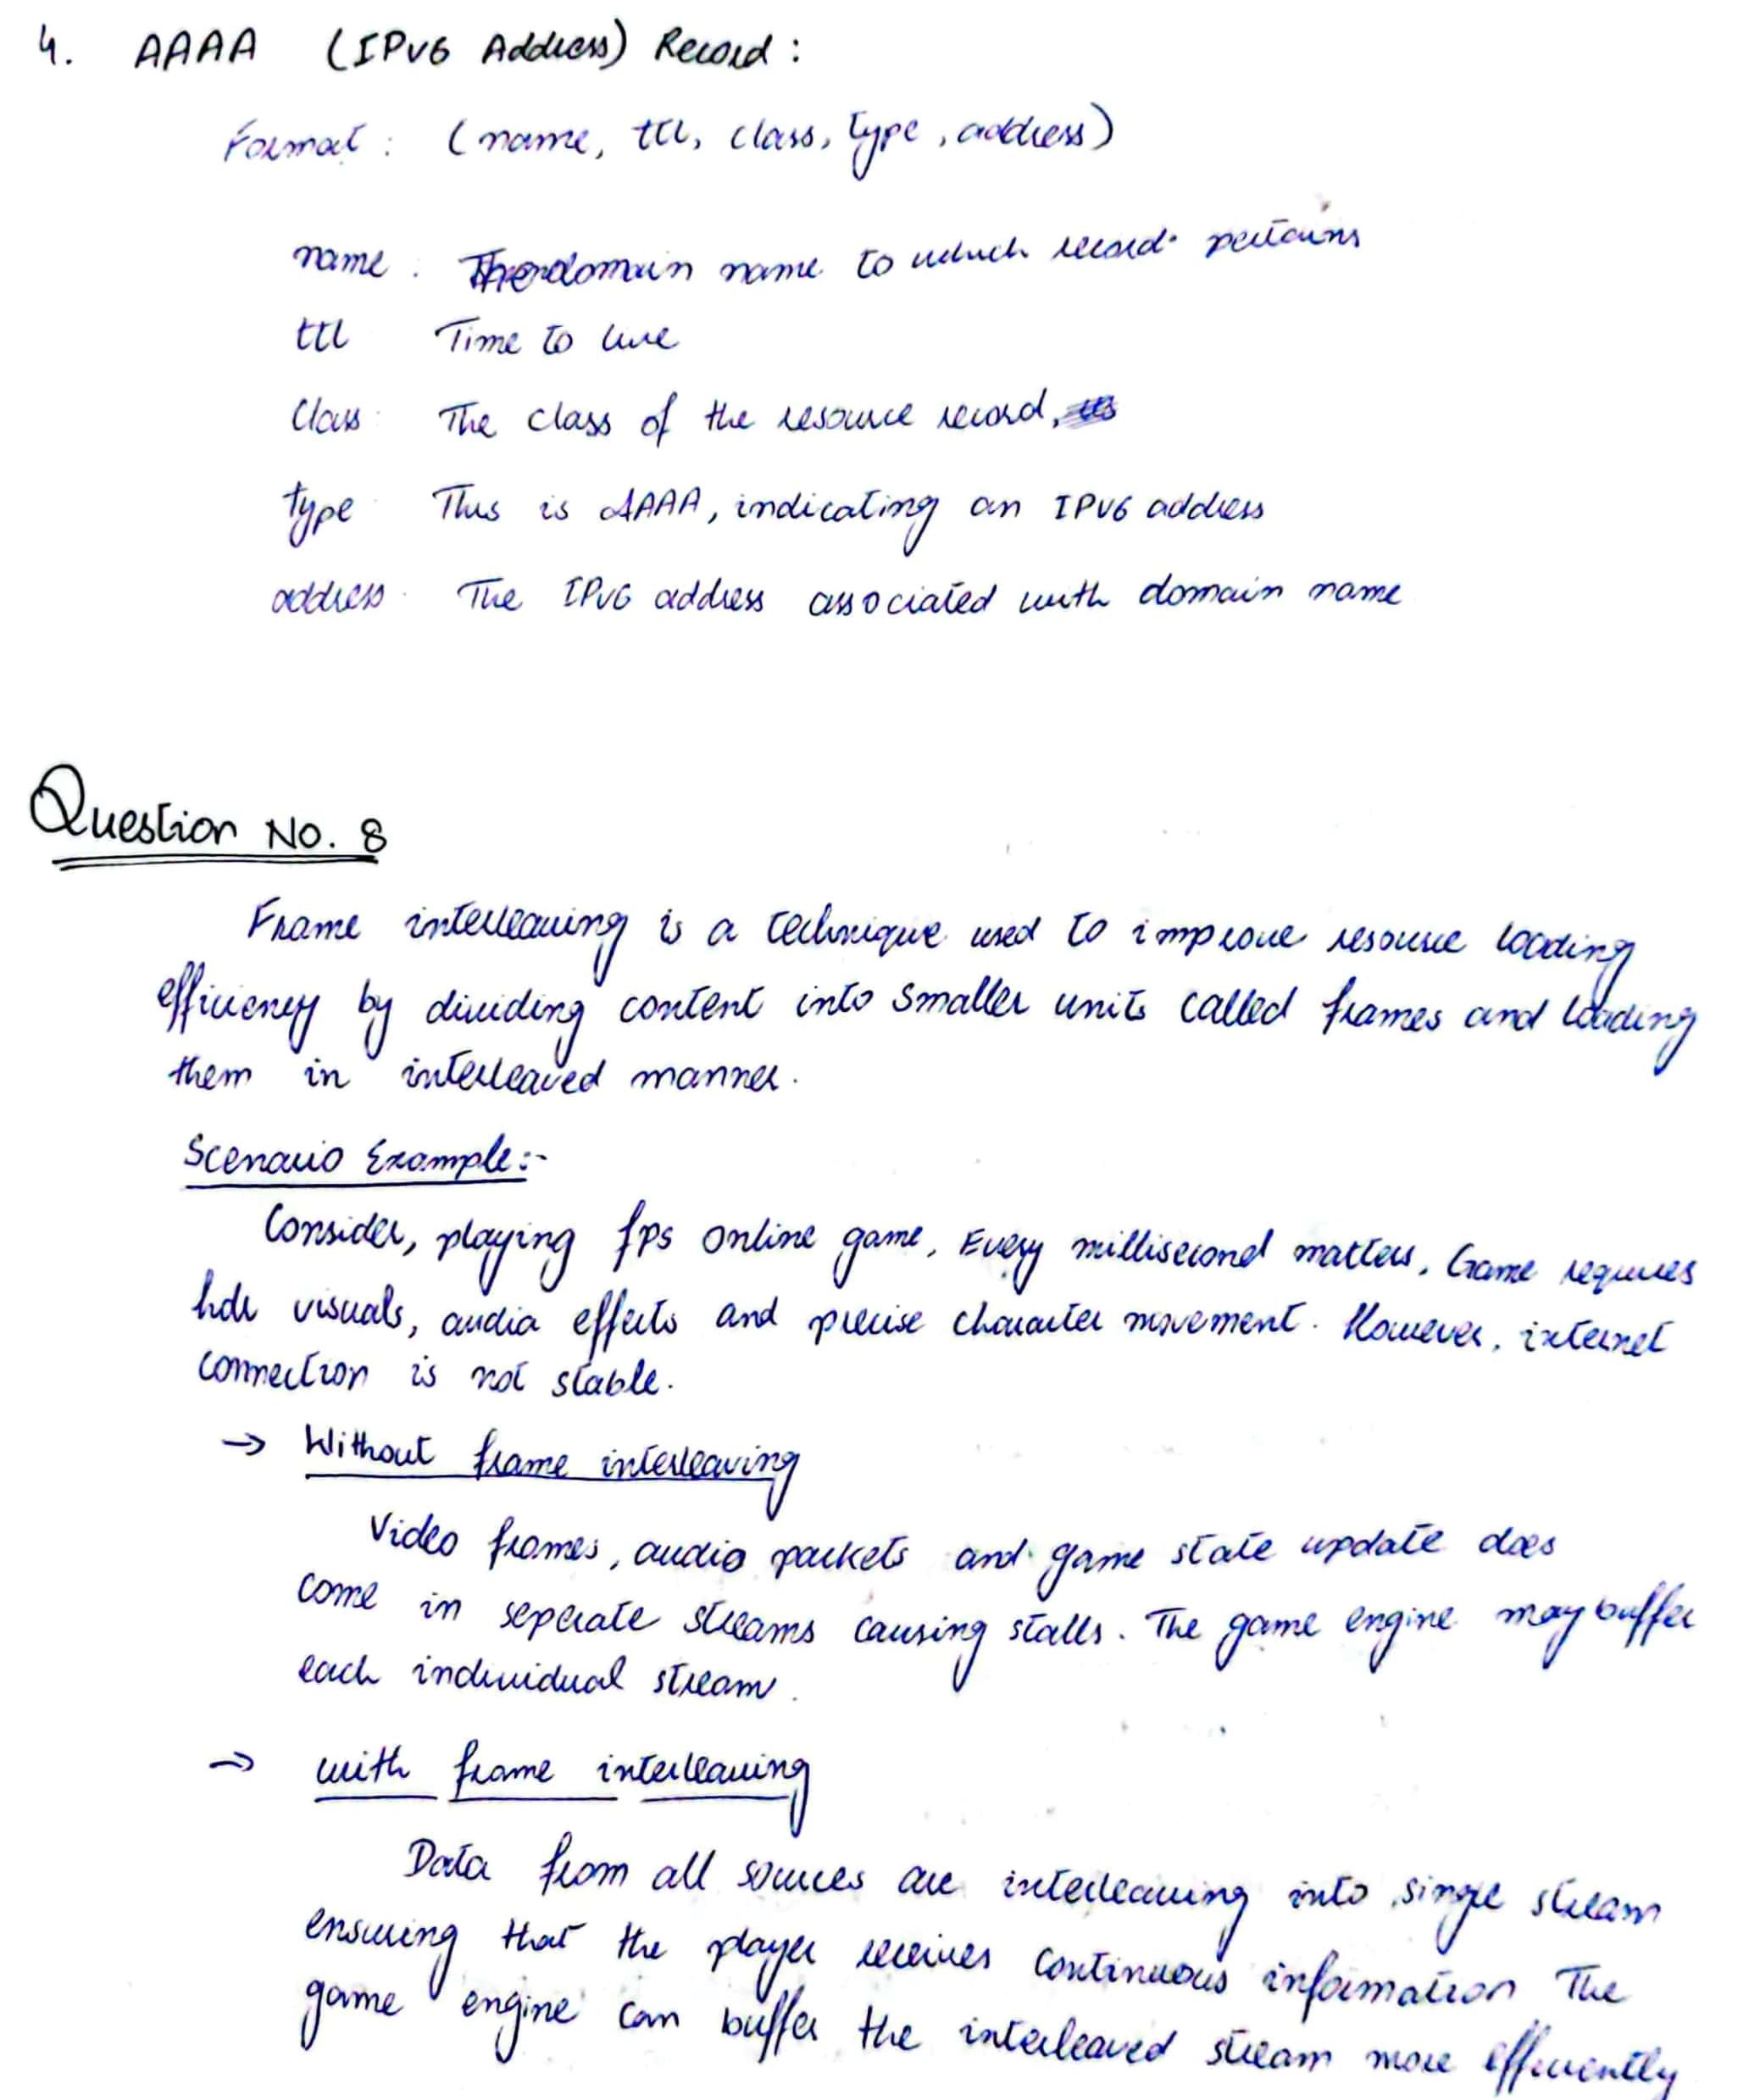 4. AAAA (IPV6 Address) Record :
Format : (name, ttl, class, type, address)
name : The domain name to which record pertains
ttl Time to live
Class : The class of the resource record,
type This is AAAA, indicating an IPV6 address
address The IPV6 address associated with domain name
Question No. 8
Frame interleaving is a technique used to improve resource loading
efficiency by dividing content into smaller units called frames and loading
them in interleaved manner.
Scenario Example:-
Consider, playing fps online game, Every millisecond matters, Game requires
hdr visuals, audio effects and precise character movement. However, internet
connection is not stable.
→ Without frame interleaving
Video frames, audio packets and game state update does
come in seperate streams causing stalls. The game engine may buffer
each individual stream.
→ with frame interleaving
Data from all sources are interleaving into single stream
ensuring that the player receives continuous information The
game engine can buffer the interleaved stream more efficiently